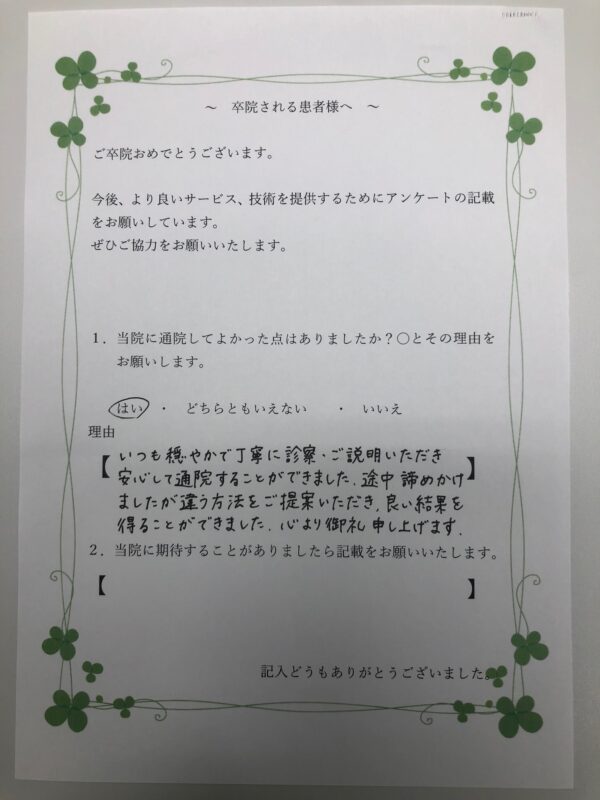 ～　卒院される患者様へ　～
ご卒院おめでとうございます。
今後、より良いサービス、技術を提供するためにアンケートの記載
をお願いしています。
ぜひご協力をお願いいたします。
１．当院に通院してよかった点はありましたか？〇とその理由を
お願いします。
はい　・　どちらともいえない　・　いいえ
理由
【いつも穏やかで丁寧に診察・ご説明いただき
安心して通院することができました。途中諦めかけ】
ましたが違う方法をご提案いただき、良い結果を
得ることができました。心より御礼申し上げます。
２．当院に期待することがありましたら記載をお願いいたします。
【　】
記入どうもありがとうございました。